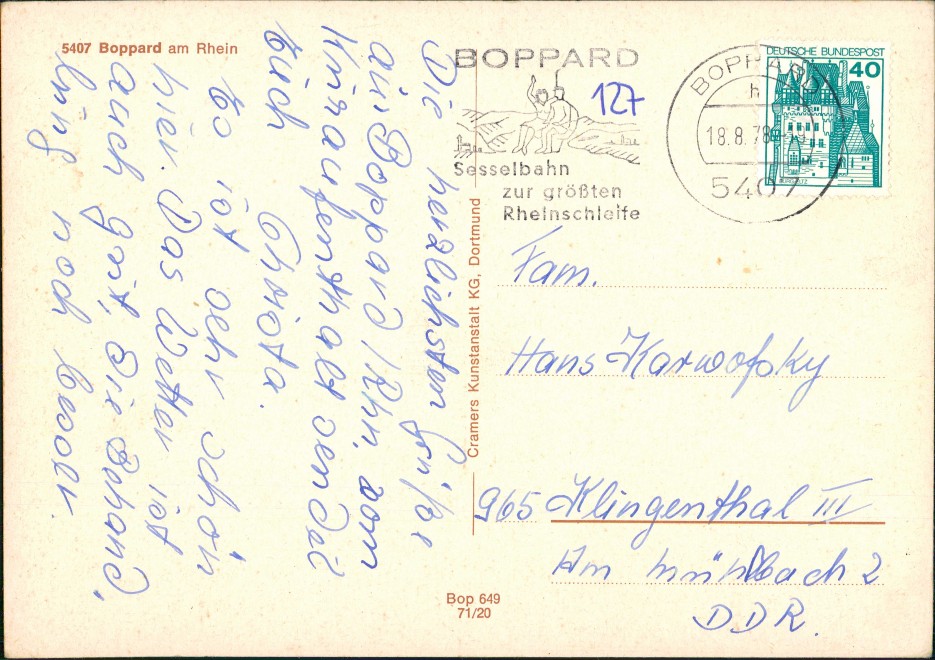 5407 Boppard am Rhein
BOPPARD
Sesselbahn
zur größten
Rheinschleife
127
BOPPARD
h
18.8.78
5407
DEUTSCHE BUNDESPOST
40
Die herzlichsten Grüße
aus Boppard/Rh. vom
Kuraufenthalt sendet
Euch
Christa.
Es ist sehr schön
hier. Das Wetter ist
auch gut, die Behand,
lung noch besser.
Cramers Kunstanstalt KG, Dortmund
Fam.
Hans Karwofsky
965 Klingenthal III
Am Mühlbach 2
DDR.
Bop 649
71/20